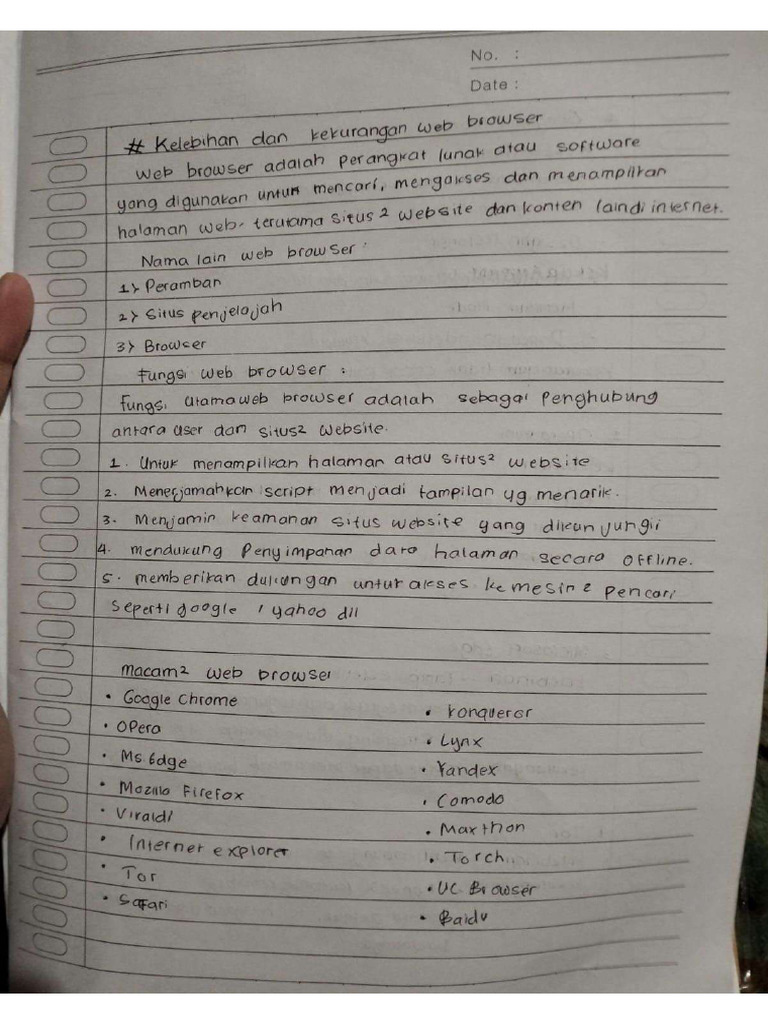 No. :
Date :
# Kelebihan dan kekurangan web browser
Web browser adalah perangkat lunak atau software
yang digunakan untuk mencari, mengakses dan menampilkan
halaman web, terutama situs2 website dan konten lain di internet.
Nama lain web browser :
1) Peramban
2) Situs penjelajah
3) Browser
Fungsi web browser :
Fungsi utama web browser adalah sebagai Penghubung
antara user dan situs2 website.
1. Untuk menampilkan halaman atau situs2 website
2. Menerjamahkan script menjadi tampilan yg menarik.
3. Menjamin keamanan situs website yang dikunjungii
4. mendukung Penyimpanan dara halaman secara offline.
5. memberikan dukungan untuk akses ke mesin2 pencari
seperti google / yahoo dll
Macam2 web browser
• Google Chrome
• Opera
• Ms. Edge
• Mozilla Firefox
• Vivaldi
• Internet explorer
• Tor
• Safari
• Konqueror
• Lynx
• Yandex
• Comodo
• Maxthon
• Torch
• UC Browser
• Baidu